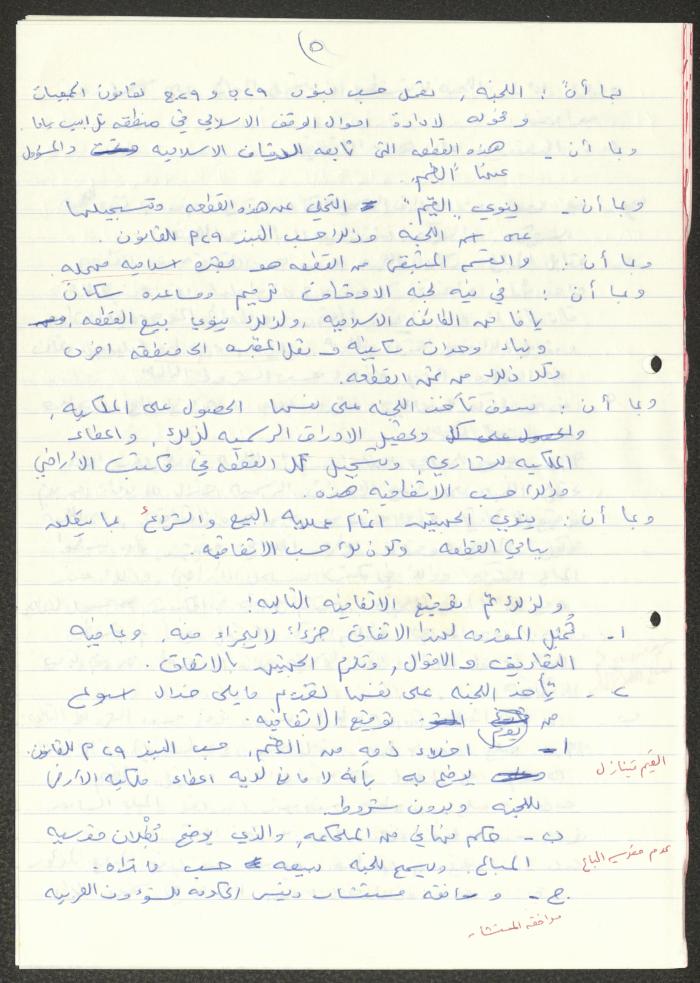 (٥
بما أن : اللجنه, تعمل حسب بنود ٢٩ب و ٢٩ج لقانون الجمعيات
ومخوله لادارة اموال الوقف الاسلامي في منطقه تل ابيب يافا
وبما أن - هذه القطعه التي تابعه للاوقاف الاسلاميه والمسؤول
عنها "القيّم"
وبما أن - ينوي "القيّم" التخلي عن هذه القطعه وتسجيلها
على اسم اللجنه وذلك حسب البند ٢٩م للقانون .
وبما أن : والقسم المتبقى من القطعه هو مقبره اسلاميه مهمله
وبما أن : في نيه لجنه الاوقاف ترميم ومساعدة سكان
يافا من الطائفه الاسلاميه, ولذلك ينوي بيع القطعه,
وبناء وحدات سكنيه و نقل المقبره الى منطقه اخرى
وكل ذلك من ثمن القطعه.
وبما أن : سوف تأخذ اللجنه على نفسها الحصول على الملكيه,
وتحضير الاوراق الرسميه لذلك, واعطاء
الملكيه للشاري, وتسجيل كل القطعه في مكتب الأراضي
وذلك حسب الاتفاقيه هذه.
وبما أن : ينوي الجهتين اتمام عمليه البيع والشراء بما يتعلق
بباقي القطعه وكل ذلك حسب الاتفاقيه.
ولذلك تم توقيع الاتفاقيه التاليه:
١- تُمثل المقدمه لهذا الاتفاق جزءاً لا يتجزاء منه, وبما فيه
التعاريف والاقوال, وتلزم الجهتين بالاتفاق.
٢ - تأخذ اللجنه على نفسها تقديم ما يلي خلال اسبوع
من يوم توقيع الاتفاقيه.
أ- اخلاء ذمه من القيّم, حسب البند ٢٩م للقانون.
يوضح به بأنه لا مانع لديه اعطاء ملكيه الأرض
للجنه وبدون شروط.
القيّم يتنازل
ب- حكم نهائي من المحكمه, والذي يوضح بُطلان قدسيه
المباع, ويسمح للجنه ببيعه حسب ما تراه.
عدم قدسيه المباع
ج- وموافقه مستشار رئيس الحكومه للشؤون العربيه
موافقه المستشار